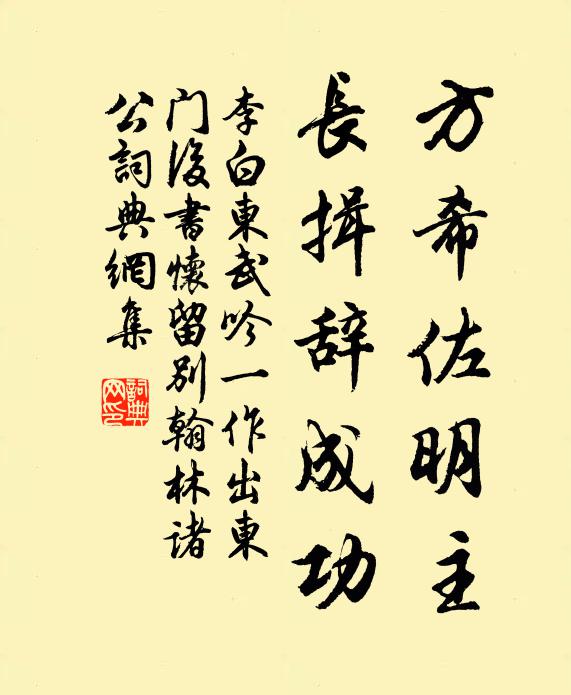 方希佐明主
長揖辞成功
李白東武吟一作出東
门後書懷留别翰林诸
公詞典網集
詞典
网印